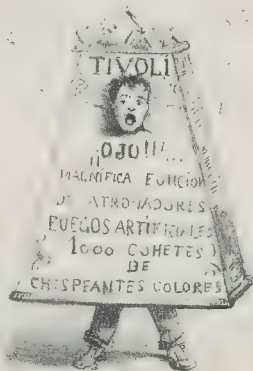 TIVOLI
¡¡OJO!!!...
MAGNÍFICA FUNCION
DE ATRONADORES
FUEGOS ARTIFICIALES
1000 COHETES
DE
CHISPEANTES COLORES